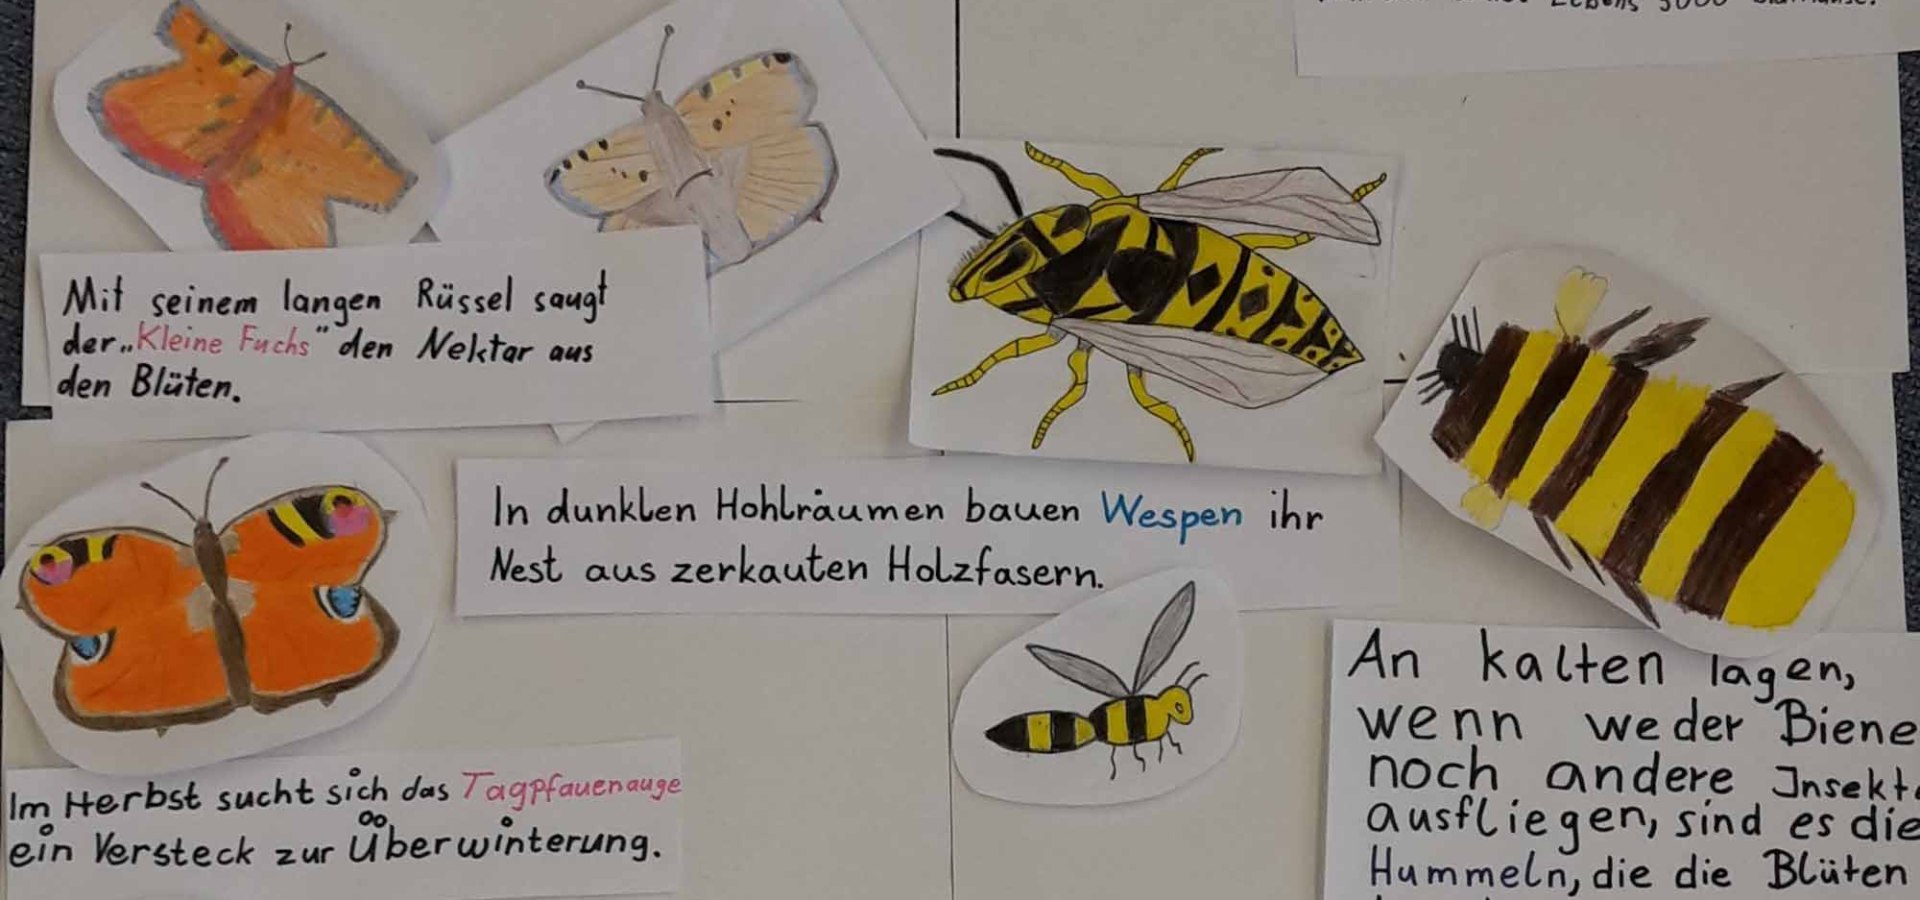 Lebens 5000
Mit seinem langen Rüssel saugt
der „Kleine Fuchs" den Nektar aus
den Blüten.
In dunklen Hohlräumen bauen Wespen ihr
Nest aus zerkauten Holzfasern.
Im Herbst sucht sich das Tagpfauenauge
ein Versteck zur Überwinterung.
An kalten Tagen,
wenn weder Biene
noch andere Insekte
ausfliegen, sind es die
Hummeln, die die Blüten